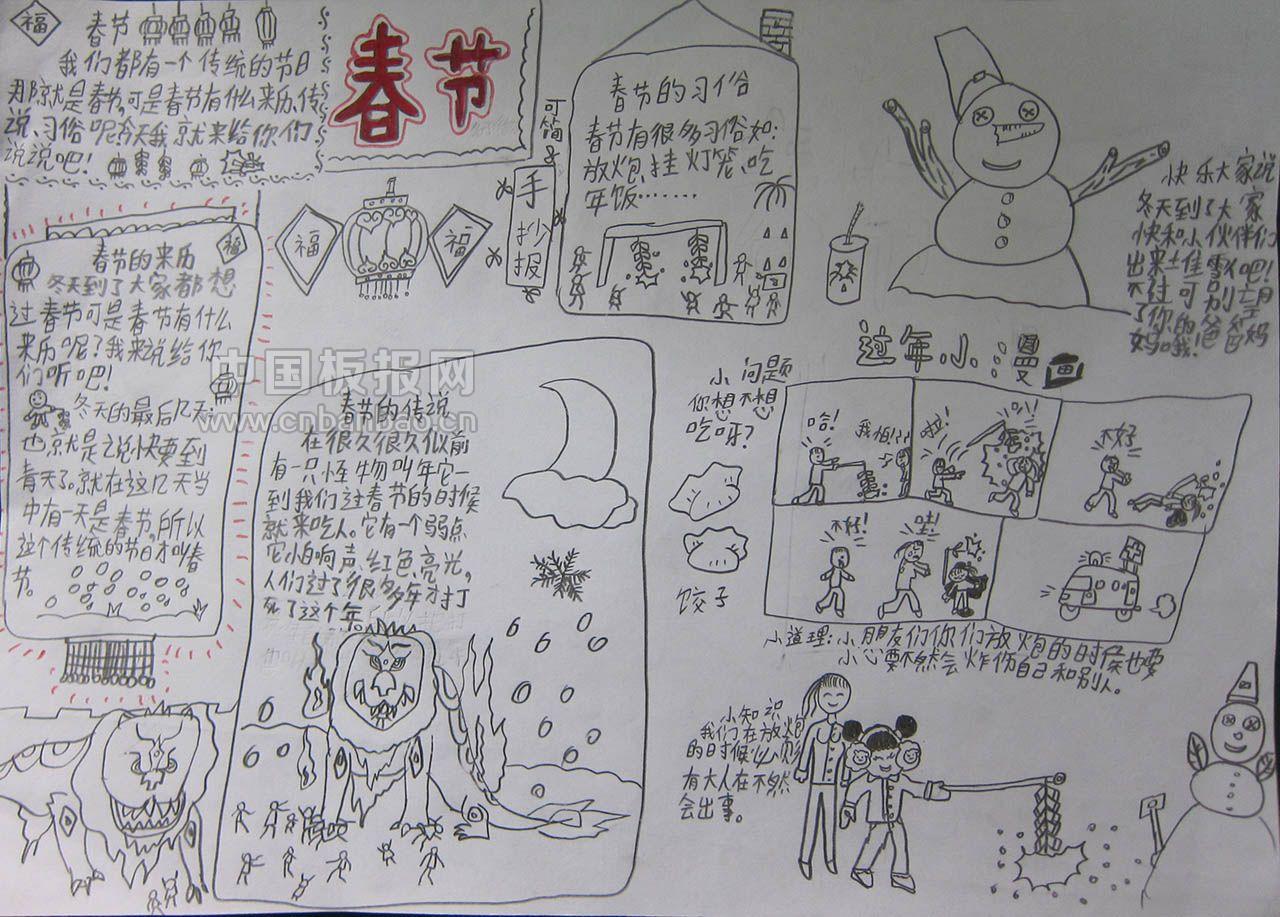 福
春节
我们都有一个传统的节日
那就是春节,可是春节有什么来历、传
说、习俗呢?今天我就来给你们
说说吧!
春节
福
福
手
抄
报
春节的习俗
春节有很多习俗如:
放炮、挂灯笼、吃
年饭……
快乐大家说
冬天到了大家
快和小伙伴们
出来堆雪人吧!
不过可别
了你的爸爸妈
妈哦!
福
春节的来历
冬天到了大家都想
过春节可是春节有什么
来历呢?我来说给你
们听吧!
冬天的最后几天
也就是说快要到
青天了。就在这几天当
中有一天是春节,所以
这个传统的节日才叫春
节。
中国板报网
www.cnbanbao.cn
春节的传说
在很久很久以前
有一只怪物叫年它一
到我们过春节的时候
就来吃人。它有一个弱点
它怕响声、红色、亮光,
人们过了很多年才打
死了这个年
小问题
你想不想
吃呀?
饺子
过年小漫画
哈!
我怕!
啦!
不好
不好!
哇!
小道理:小朋友们你们放炮的时候也要
小心要不然会炸伤自己和别人。
小知识
我们在放炮
的时候必须
有大人在不然
会出事。